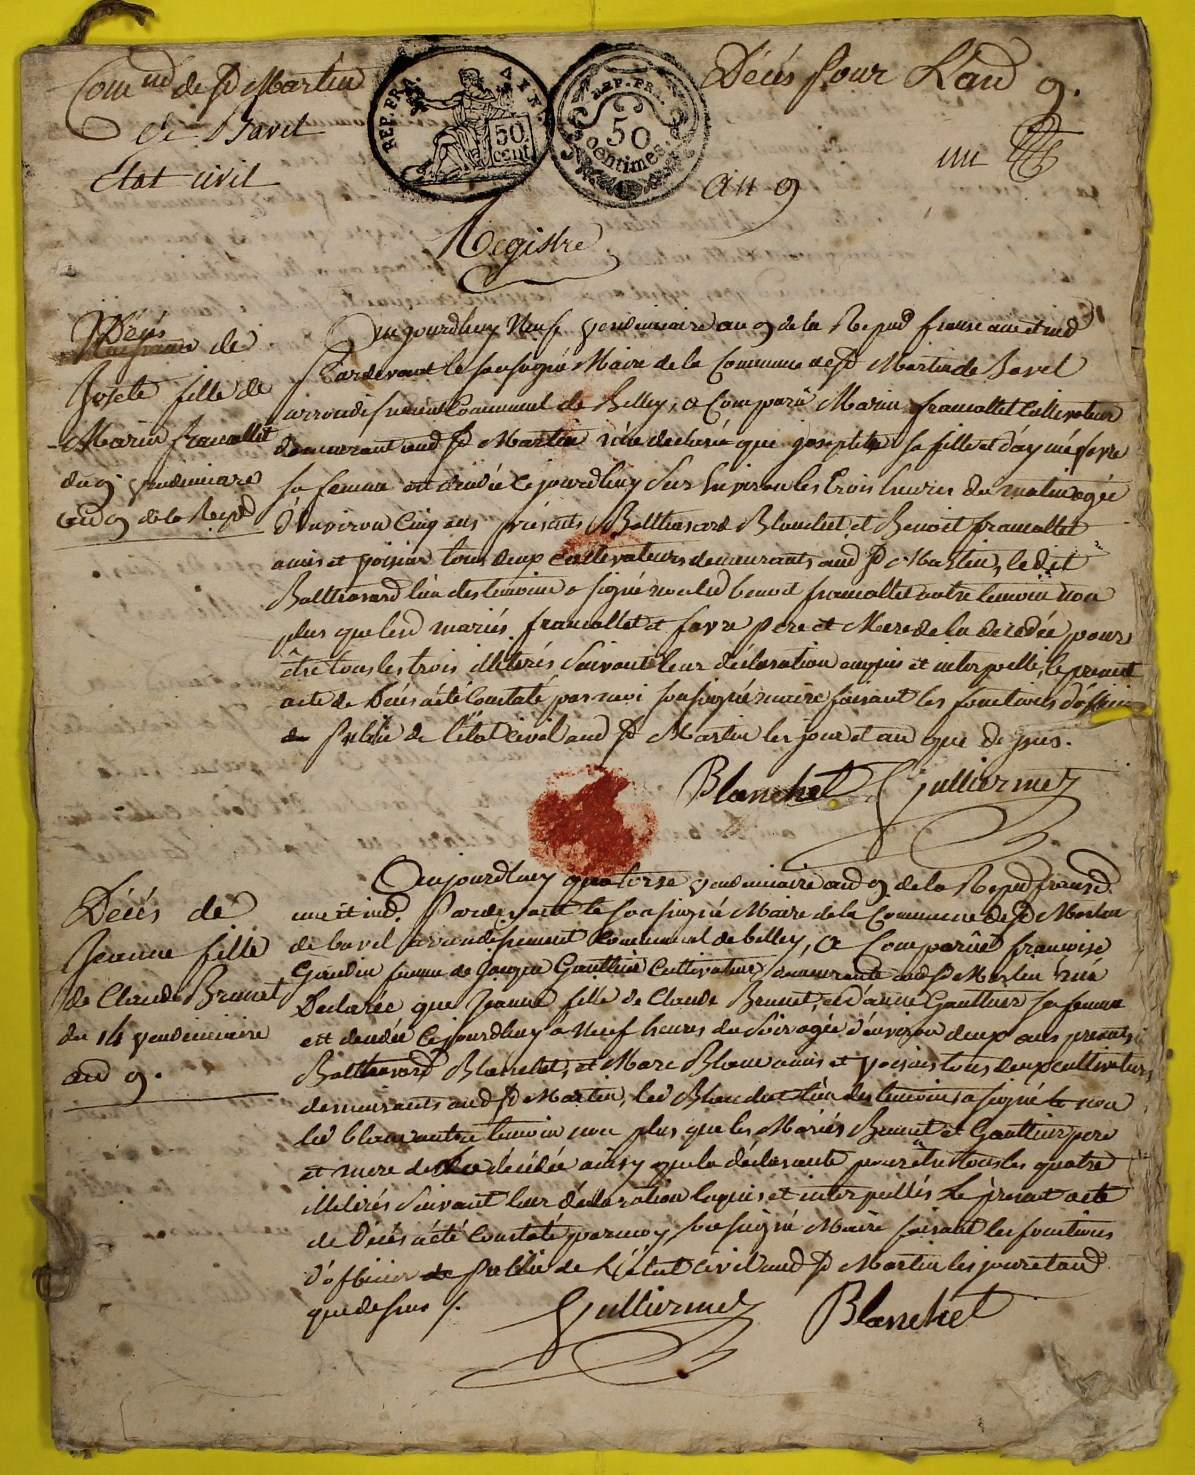 Comm.ne de St Martin
de Bavel
Etat civil
REP. FRA.
AYN
50
cent
REP. FRA.
50
centimes
Décés pour L'and 9.
un
an 9
Registre
Décés de
Josete fille de
Marin francallet
du 9 vendemiaire
and 9 de la Repd
aujourdhuy Neuf vendemiaire an 9 de la Repud francaine et ind
Pardevant le sousigné Maire de la Commune de St Martin de Bavel
arrondissement Communal de Belley, a Comparu Marin francallet Cultivateur
demeurant aud St Martin declaré que josephte sa fille et d'aymé favre
sa femme est decedée cejourdhuy sur Environ les trois heures du matin agée
d'Environ Cinq ans présents Balthasard Blanchet et Benoit francallet
amis et voisins tous deux cultivateurs demeurants aud St Martin, ledit
Balthasard l'un des temoins a signé non led benoit francallet autre temoin non
plus que les d mariés francallet et favre pere et Mere de la decedée pour
être tous les trois illiterés suivant leur déclaration enquis et interpellé, le present
acte de Décés a été Constaté par moi sousigné maire faisant les fonctions d'officier
de public de l'état civil aud St Martin les jour et an que de sus.
Blanchet Gulliermet
Décés de
Jeanne fille
de Claude Brunet
du 14 vendemiaire
and 9.
aujourdhuy quatorse vendemiaire and 9 de la Repud fransd
une et ind. Pardevant le sousigné Maire de la Commune de St Martin
de bavel arrondissement communal de belley, a Comparüe francoise
Gaudin femme de Gaultier Cultivateur demeurante aud St Martin
Declarée que Jeanne fille de Claude Brunet, et d'anne Gaultier sa femme
est decedée cejourdhuy a Neuf heures du Soir agée d'environ deux ans presents
Balthasard Blanchet, et Marc Blanc amis et voisins tous deux cultivateurs
demeurants aud St Martin, led Blanchet l'un des temoins a signé le non
led blanc autre temoin non plus que les Mariés Brunet et Gaultier pere
et mere de la decedée ainsy que la déclarante pour être tous les quatre
illiterés suivant leur déclaration enquis et interpellés Le present acte
de Décés a été Constaté par moy sousigné Maire faisant les fonctions
d'officier de public de L'état Civil aud St Martin les jour et and
que de sus /.
Gulliermet Blanchet